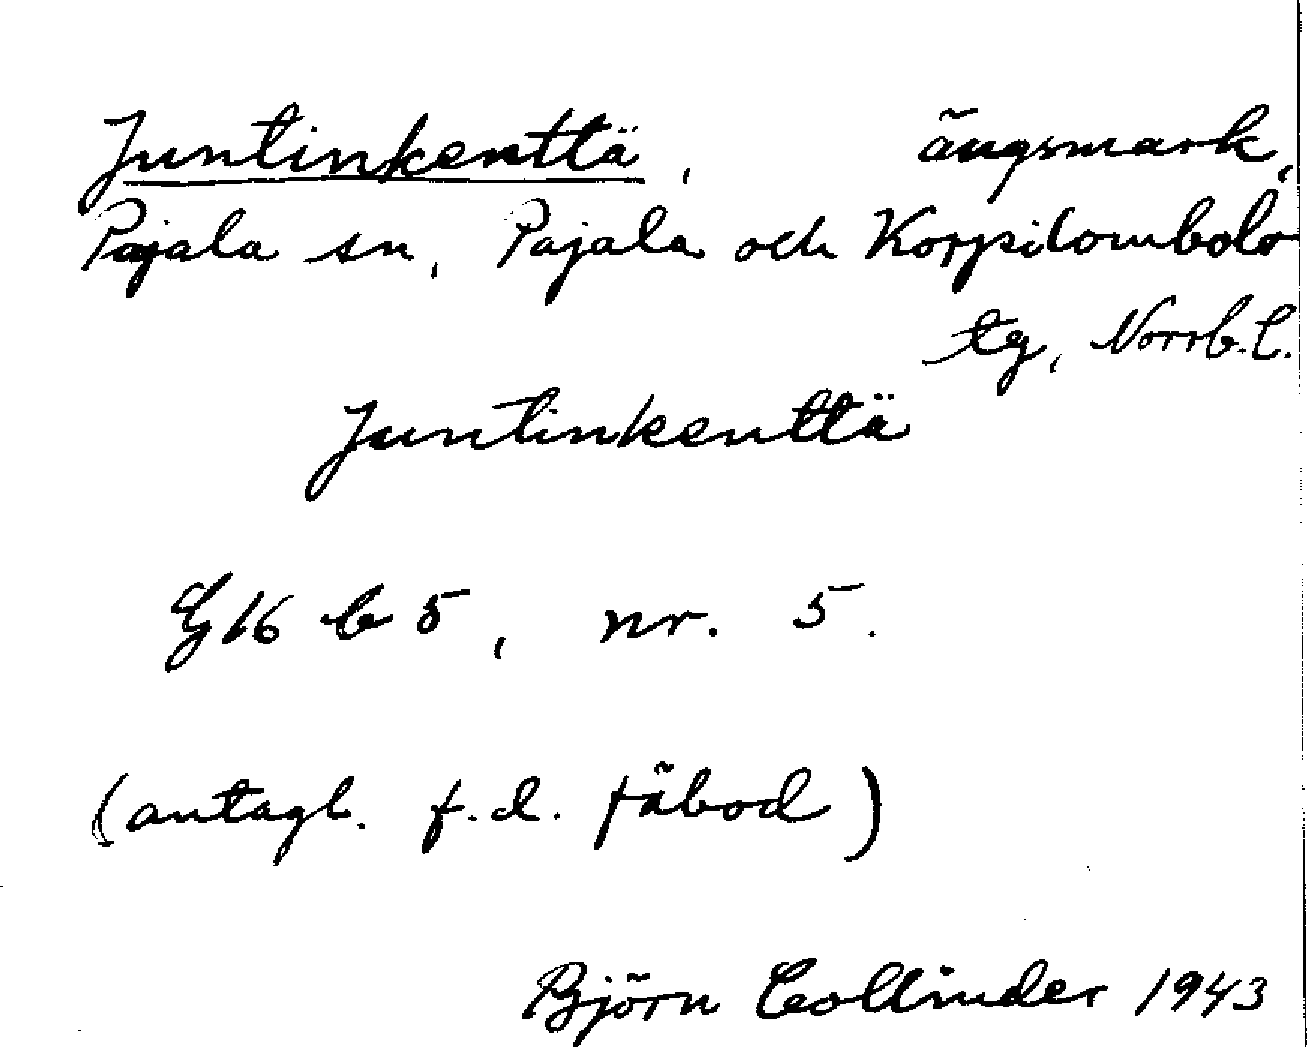 Juntinkenttä, ängsmark,
Pajala sn, Pajala och Korpilombolo
tg, Norrb. l.
Juntinkenttä
G16 b 5, nr. 5.
(antagl. f.d. fäbod)
Björn Collinder 1943